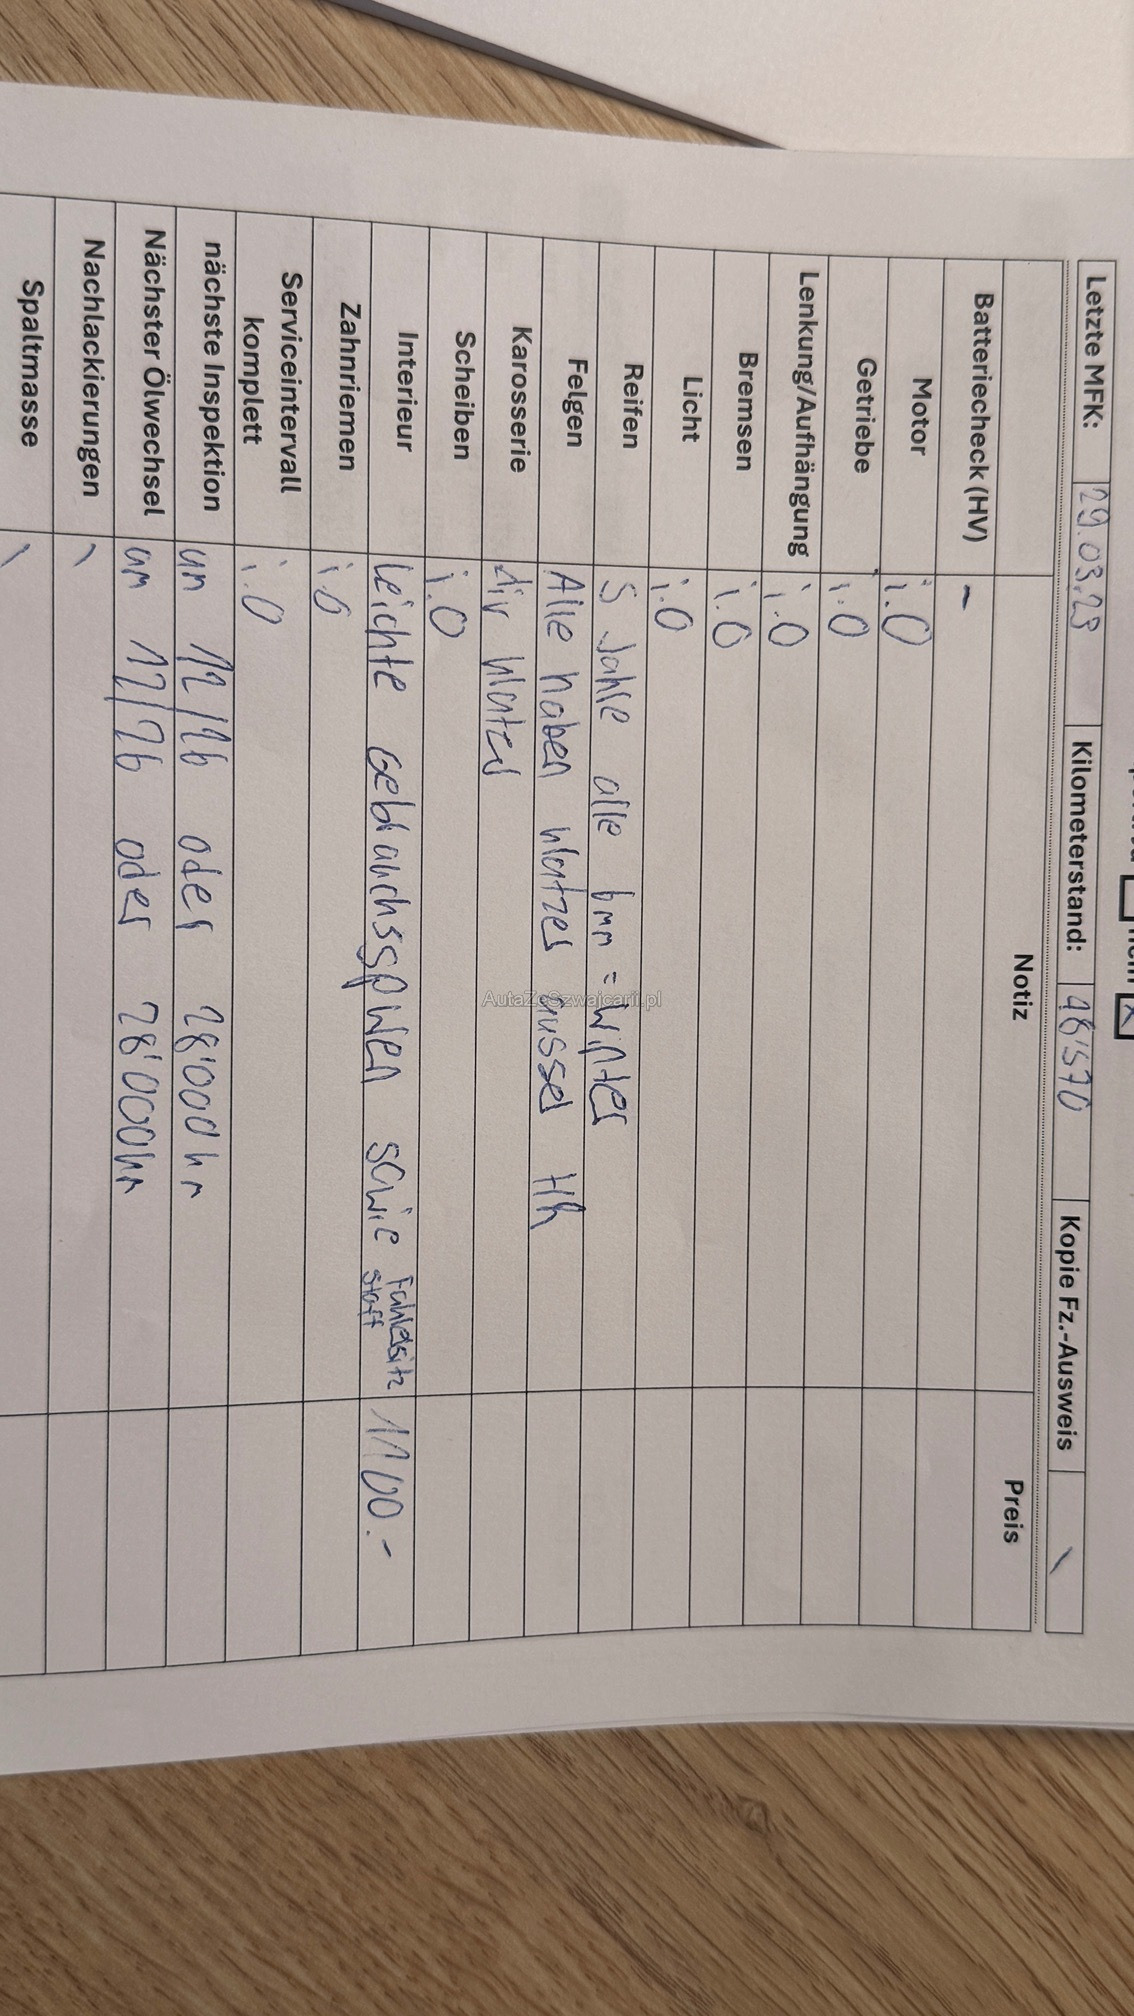 nein ☒
Letzte MFK: 29.03.23 Kilometerstand: 48'570 Kopie Fz.-Ausweis \
Notiz Preis
Batteriecheck (HV) –
Motor i.O
Getriebe i.O
Lenkung/Aufhängung i.O
Bremsen i.O
Licht i.O
Reifen 5 Jahre alle 6mm = Winter
Felgen Alle haben kratzer ausser HR
Karosserie div kratzer
Scheiben i.O
Interieur leichte Gebrauchsspuren sowie Fahrersitz stoff 1100.-
Zahnriemen i.O
Serviceintervall komplett i.O
nächste Inspektion am 12/26 oder 28'000km
Nächster Ölwechsel am 12/26 oder 28'000km
Nachlackierungen \
Spaltmasse \
AutaZeSzwajcarii.pl